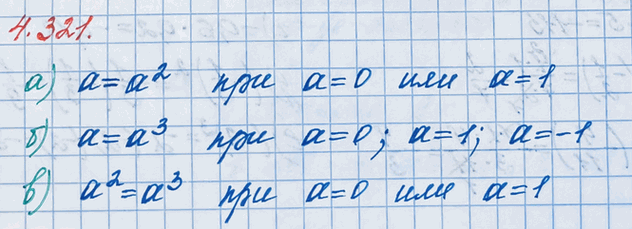 4.321.
а) a = a² при a = 0 или a = 1
б) a = a³ при a = 0; a = 1; a = -1
в) a² = a³ при a = 0 или a = 1